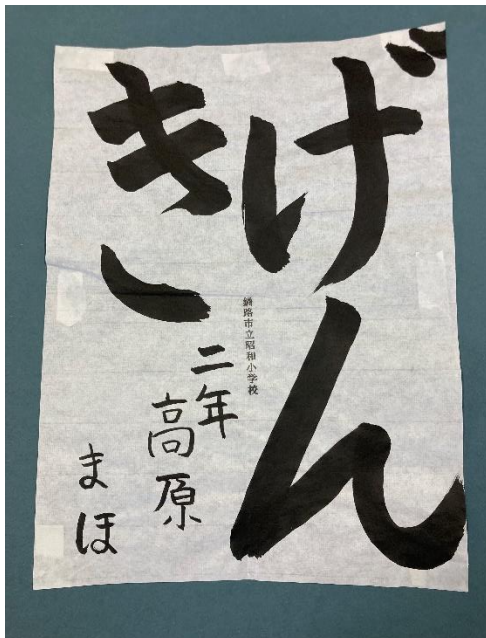 げん
き
釧路市立昭和小学校
二年
高原
まほ